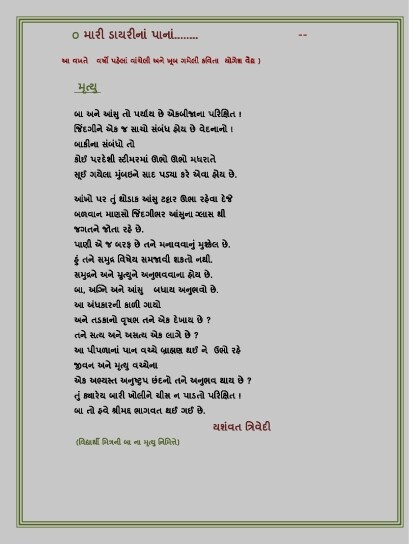 O મારી ડાયરીનાં પાનાં........ --
આ વખતે વર્ષો પહેલાં વાંચેલી અને ખૂબ ગમેલી કવિતા યોગેશ વૈદ્ય )
મૃત્યુ
બા અને આંસુ તો પર્યાય છે એકબીજાના પરિક્ષિત !
જિંદગીને એક જ સાચો સંબંધ હોય છે વેદનાનો !
બાકીના સંબંધો તો
કોઈ પરદેશી સ્ટીમરમાં ઊભો ઊભો મધરાતે
સૂઈ ગયેલા મુંબઇને સાદ પડ્યા કરે એવા હોય છે.
આંખો પર તું થોડાક આંસુ ટટ્ટાર ઊભા રહેવા દેજે
બળવાન માણસો જિંદગીભર આંસુના ગ્લાસ થી
જગતને જોતા રહે છે.
પાણી એ જ બરફ છે તને મનાવવાનું મુશ્કેલ છે.
હું તને સમુદ્ર વિષેય સમજાવી શકતો નથી.
સમુદ્રને અને મ્રુત્યુને અનુભવવાના હોય છે.
બા, અગ્નિ અને આંસુ બધાય અનુભવો છે.
આ અંધકારની કાળી ગાયો
અને તડકાનો વૃષભ તને એક દેખાય છે ?
તને સત્ય અને અસત્ય એક લાગે છે ?
આ પીપળાનાં પાન વચ્ચે બ્રાહ્મણ થઈ ને ઉભો રહે
જીવન અને મૃત્યુ વચ્ચેના
એક અભ્યસ્ત અનુષ્ટુપ છંદનો તને અનુભવ થાય છે ?
તું ક્યારેય બારી ખોલીને ચીસ ન પાડતો પરિક્ષિત !
બા તો હવે શ્રીમદ્ ભાગવત થઈ ગઈ છે.
યશંવત ત્રિવેદી
(વિદ્યાર્થી મિત્રની બા ના મૃત્યુ નિમિત્તે)